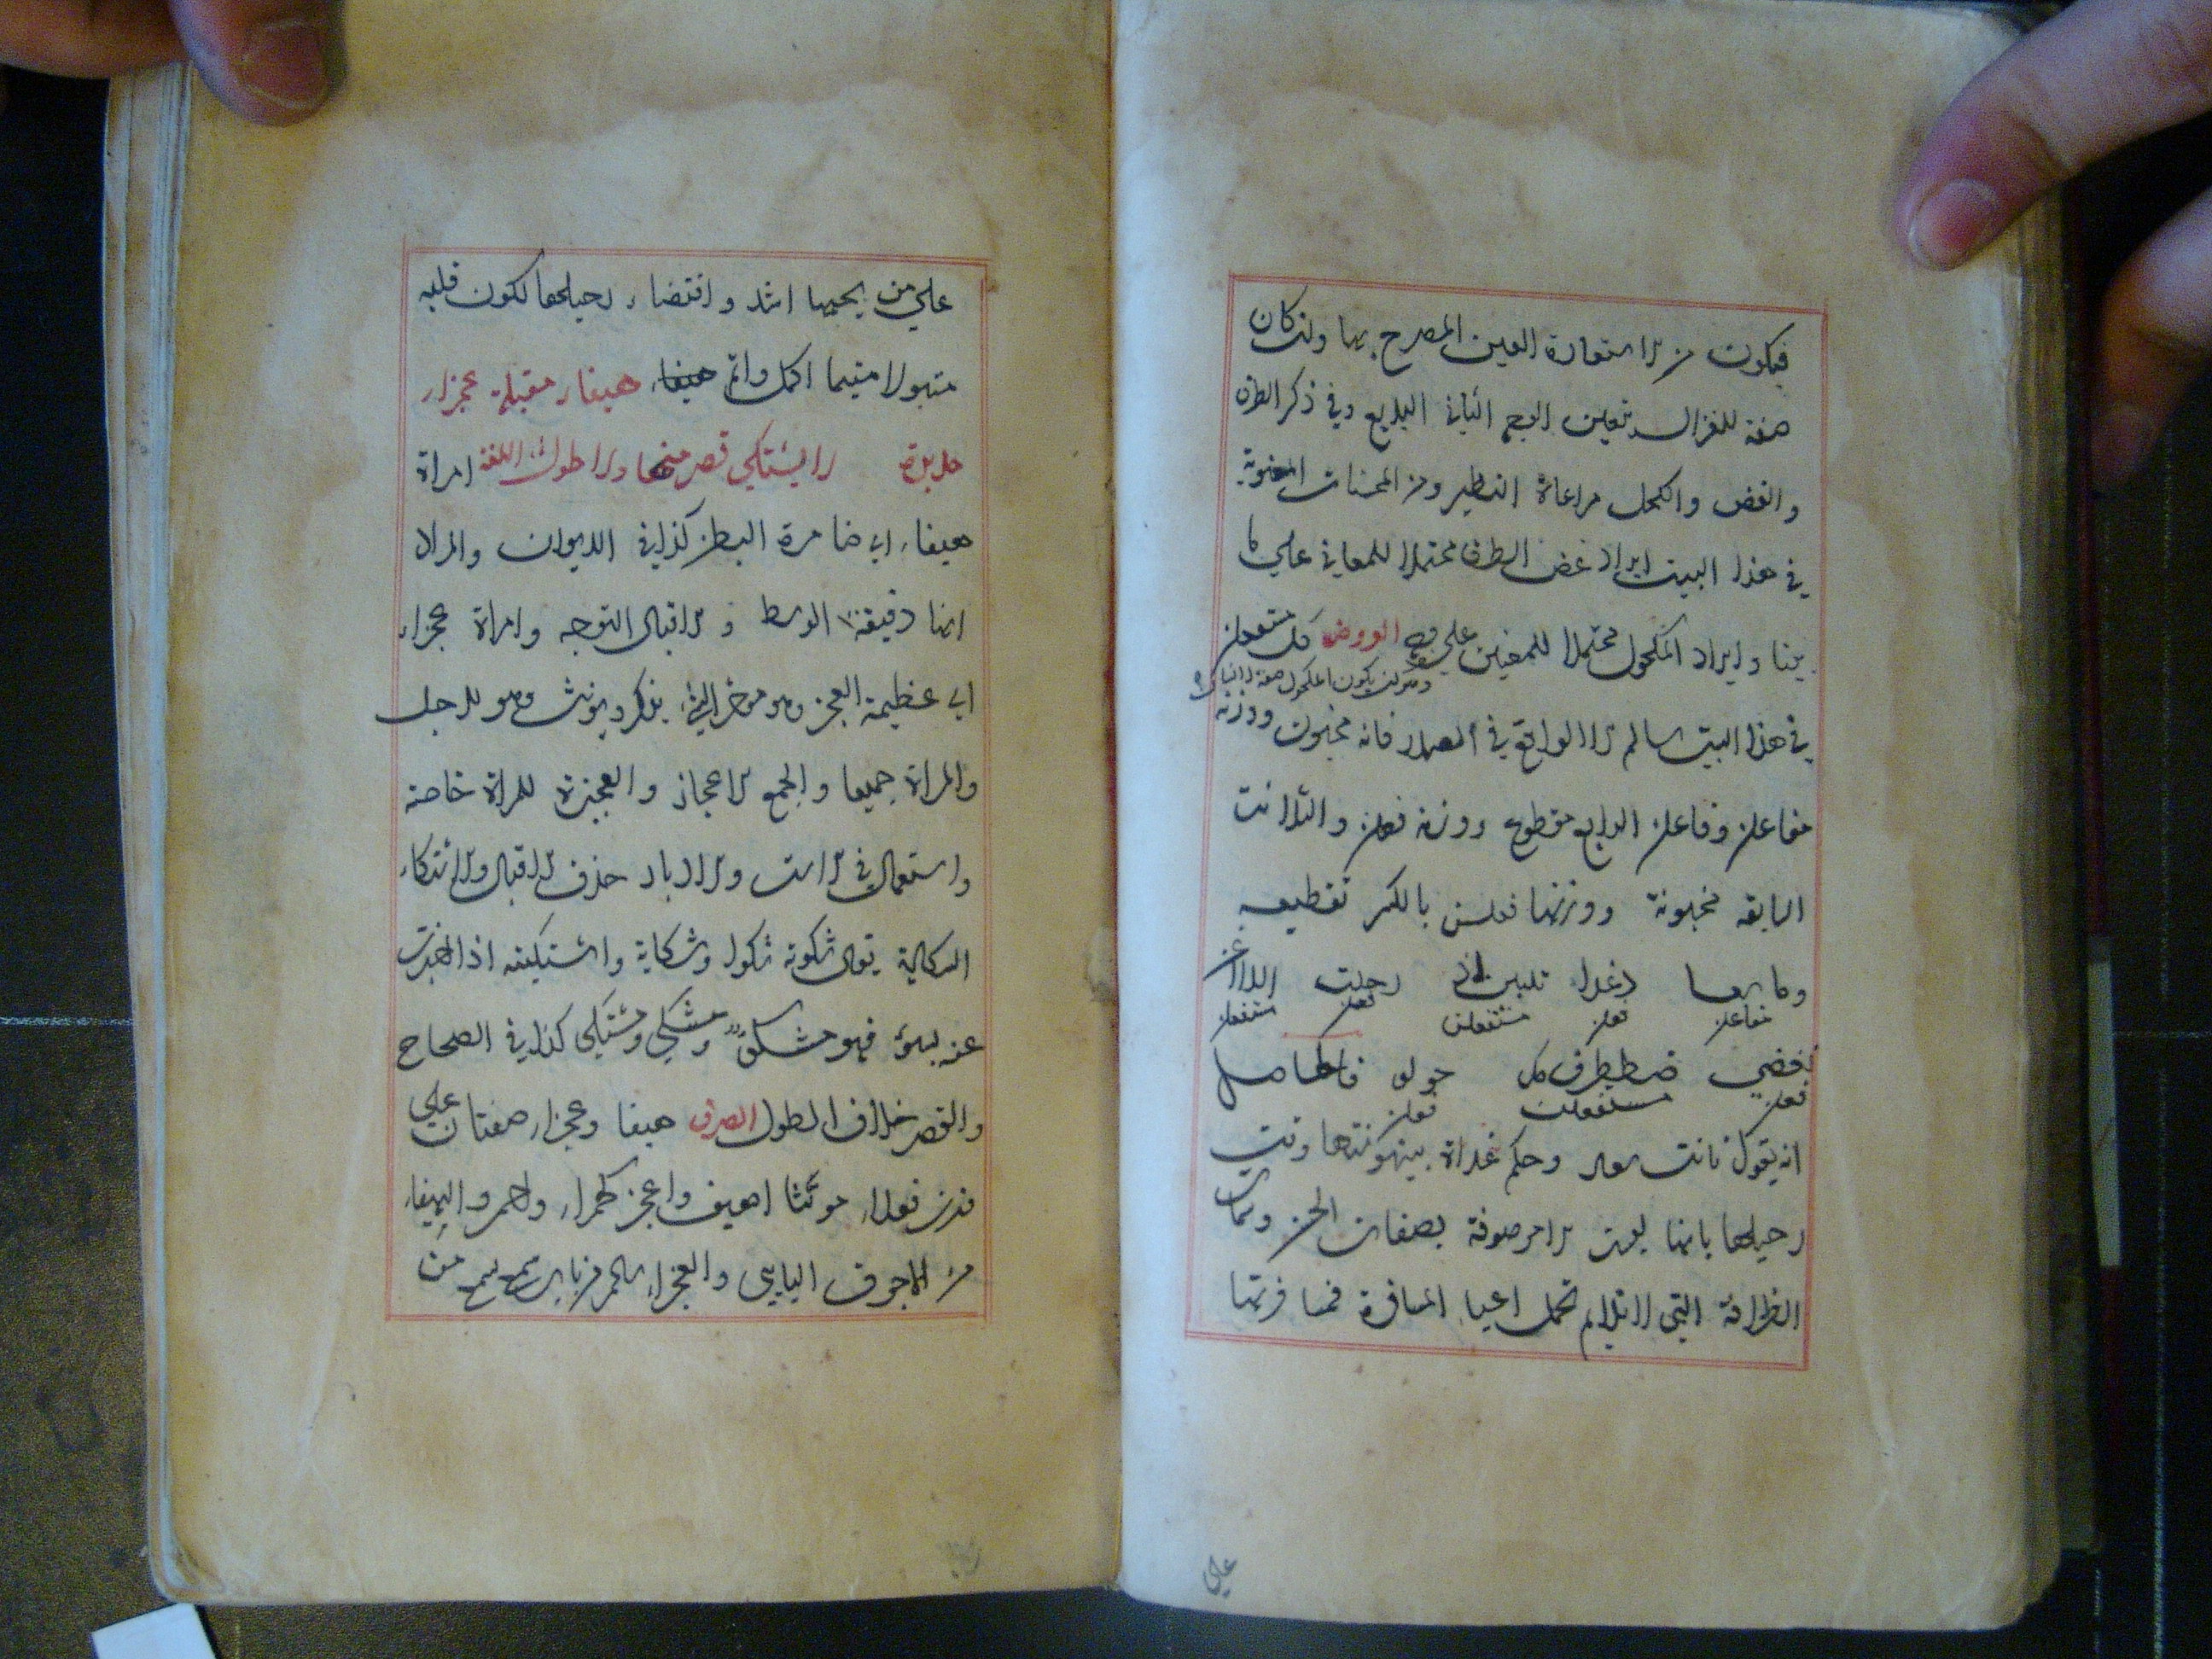 فيكون من الاستعارة العين المصرح بها وان كان
صفة للغزال تعين الوجه الثاني البديع وفي ذكر الطرف
والغض والكحل مراعاة النظير ومن المحسنات المعنوية
في هذا البيت ايراد غض الطرف محتملا للمعاني على ما
بينا وايراد المكحول محتملا للمعنيين على العروض كل مستفعلن
في هذا البيت سالم الا الواقع في الصدر فانه مخبون ووزنه
مفاعلن وفاعلن الرابع مقطوع ووزنه فعلن والثلاث
السابقه مخبونة ووزنها فعلن بالكسر تقطيعه
وما سعا دغدا تلبين اذ رحلت اللااغن
مفاعلن فعلن مستفعلن فعلن مستفعلن
نغضي ضطرف مك حولو فالحاصل
فعلن مستفعلن فعلن
انه يقول بانت سعاد وحكم غداة بينونتها وقت
رحيلها بانها ليست الا موصوفة بصفات الحسن وسمات
الظرافة التي لا تلايم تحمل اعباء المسافرة فمسافرتها
على
على من يحبها اشد واقتضاء رحيلها لكون قلبه
متبولا متيما اكمل واتم هيفاء هيفاء مقبلة عجزاء
مدبرة لا يشتكى قصر منها ولا طول اللغة امراة
هيفاء اي ضامرة البطن كذا في الديوان والمراد
انها دقيقة الوسط والاقبال التوجه وامراة عجزاء
اي عظيمة العجز وهو مؤخر الشيء يذكر ويونث وهو للرجل
والمراة جميعا والجمع الاعجاز والعجيزة للمراة خاصة
واستعماله في الاست والادبار خلاف الاقبال والاشتكاء
الشكاية يقال شكوته شكوا وشكاية واشتكيته اذا اخبرت
عنه بسوء فهو مشكو ومشكي ومشتكى كذا في الصحاح
والقصر خلاف الطول الصرف هيفا وعجزاء صفتان على
وزن فعلاء مونثا اهيف واعجز كحمراء واحمر والهيفاء
من الاجوف اليايي والعجزاء سالم من باب سمع يسمع من